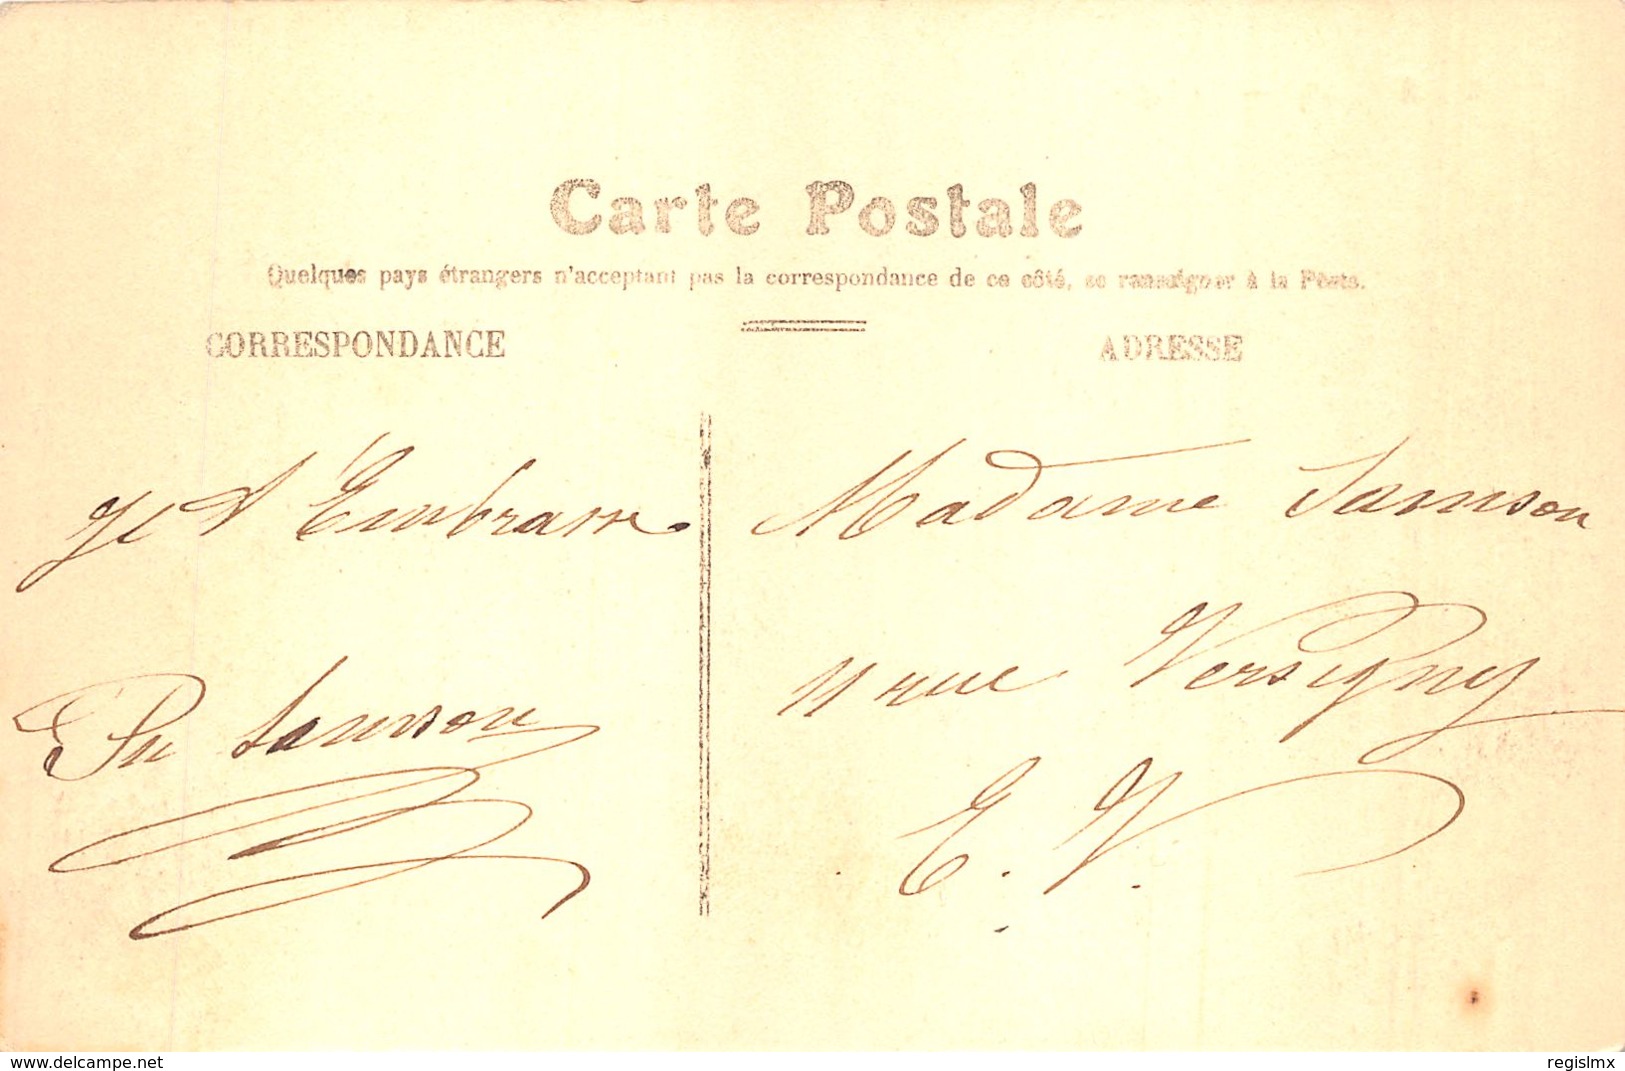 Carte Postale
Quelques pays étrangers n'acceptant pas la correspondance de ce côté, se renseigner à la Poste.
CORRESPONDANCE
ADRESSE
Je t'Embrasse.
Samson
Madame Samson
11 rue Versigny
E. V.
www.delcampe.net
regislmx